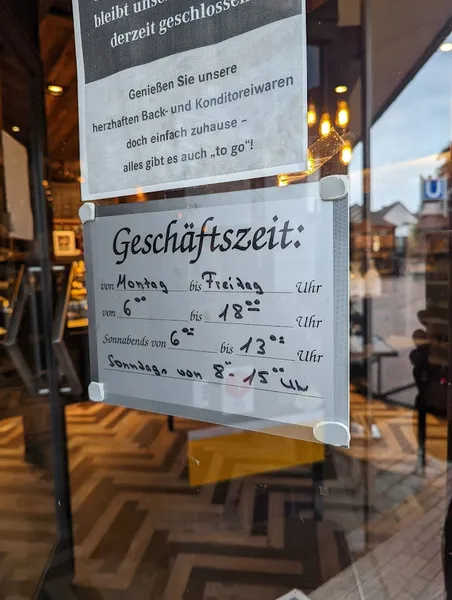 bleibt uns
derzeit geschlossen
Genießen Sie unsere
herzhaften Back- und Konditoreiwaren
doch einfach zuhause –
alles gibt es auch „to go“!
Geschäftszeit:
von Montag bis Freidag Uhr
von 6⁰⁰ bis 18⁰⁰ Uhr
Sonnabends von 6⁰⁰ bis 13⁰⁰ Uhr
Sonndags von 8⁰⁰ - 15⁰⁰ Uhr
U